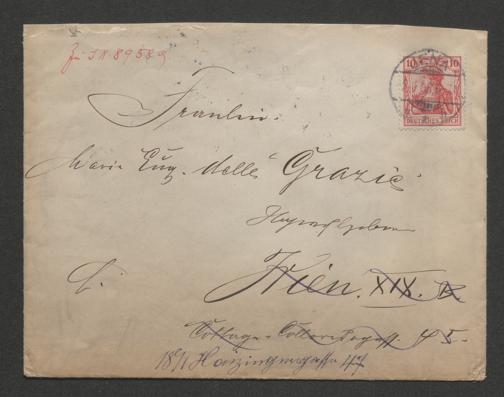 Zu I N 89589
10 10
DEUTSCHES REICH
Fräulein
Marie Eug. delle Grazie
Hochwohlgeboren
Wien. XIX.
Cottage- 45.
18/1 Haizingergasse